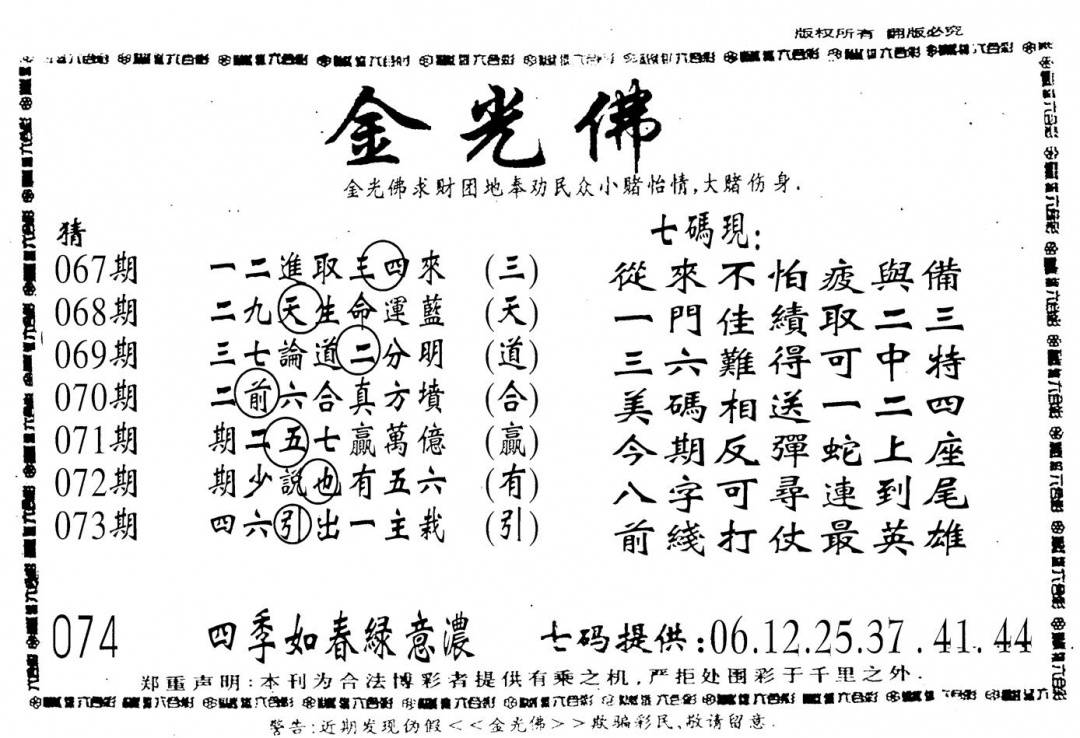 版权所有 翻版必究
金光佛
金光佛求财团地奉劝民众小赌怡情,大赌伤身.
猜
067期 一二進取三四來 (三)
068期 二九天生命運藍 (天)
069期 三七論道二分明 (道)
070期 二前六合真方墳 (合)
071期 期二五七贏萬億 (贏)
072期 期少說也有五六 (有)
073期 四六引出一主栽 (引)
七碼現:
從來不怕疲與備
一門佳績取二三
三六難得可中特
美碼相送一二四
今期反彈蛇上座
八字可尋連到尾
前綫打仗最英雄
074 四季如春緑意濃 七码提供:06.12.25.37.41.44
郑重声明:本刊为合法博彩者提供有乘之机,严拒处围彩于千里之外.
警告:近期发现伪假<<金光佛>>欺骗彩民、敬请留意.